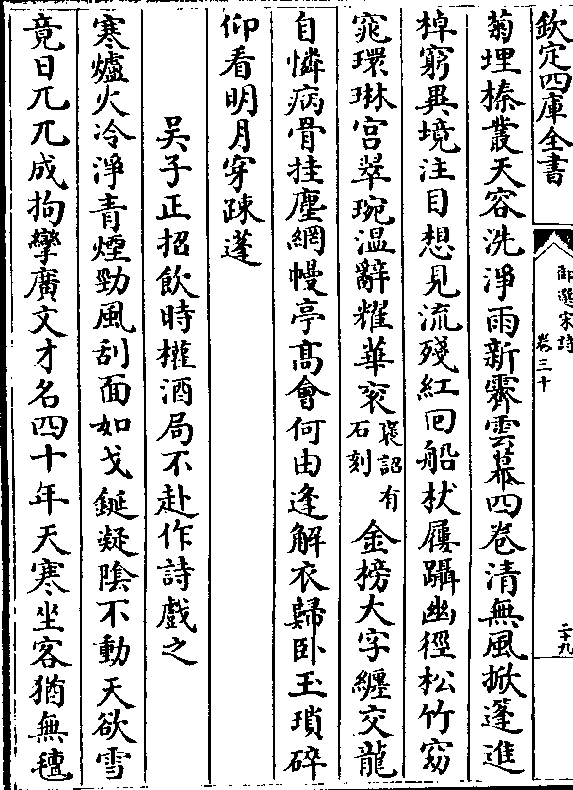 欽定四庫全書
御選宋詩
卷三十
二十九
菊埋榛叢天容洗淨雨新霽雲幕四卷清無風掀蓬進
棹窮異境注目想見流殘紅囘船杖屨躡幽徑松竹窈
窕環琳宫翠琬温辭耀華衮褒詔有石刻金榜大字纒交龍
自憐病骨挂塵網幔亭髙會何由逢解衣歸卧玉瑣碎
仰看明月穿疎蓬
吴子正招飲時權酒局不赴作詩戲之
寒爐火冷淨青煙勁風刮面如戈鋋凝陰不動天欲雪
竟日兀兀成拘攣廣文才名四十年天寒坐客猶無氊